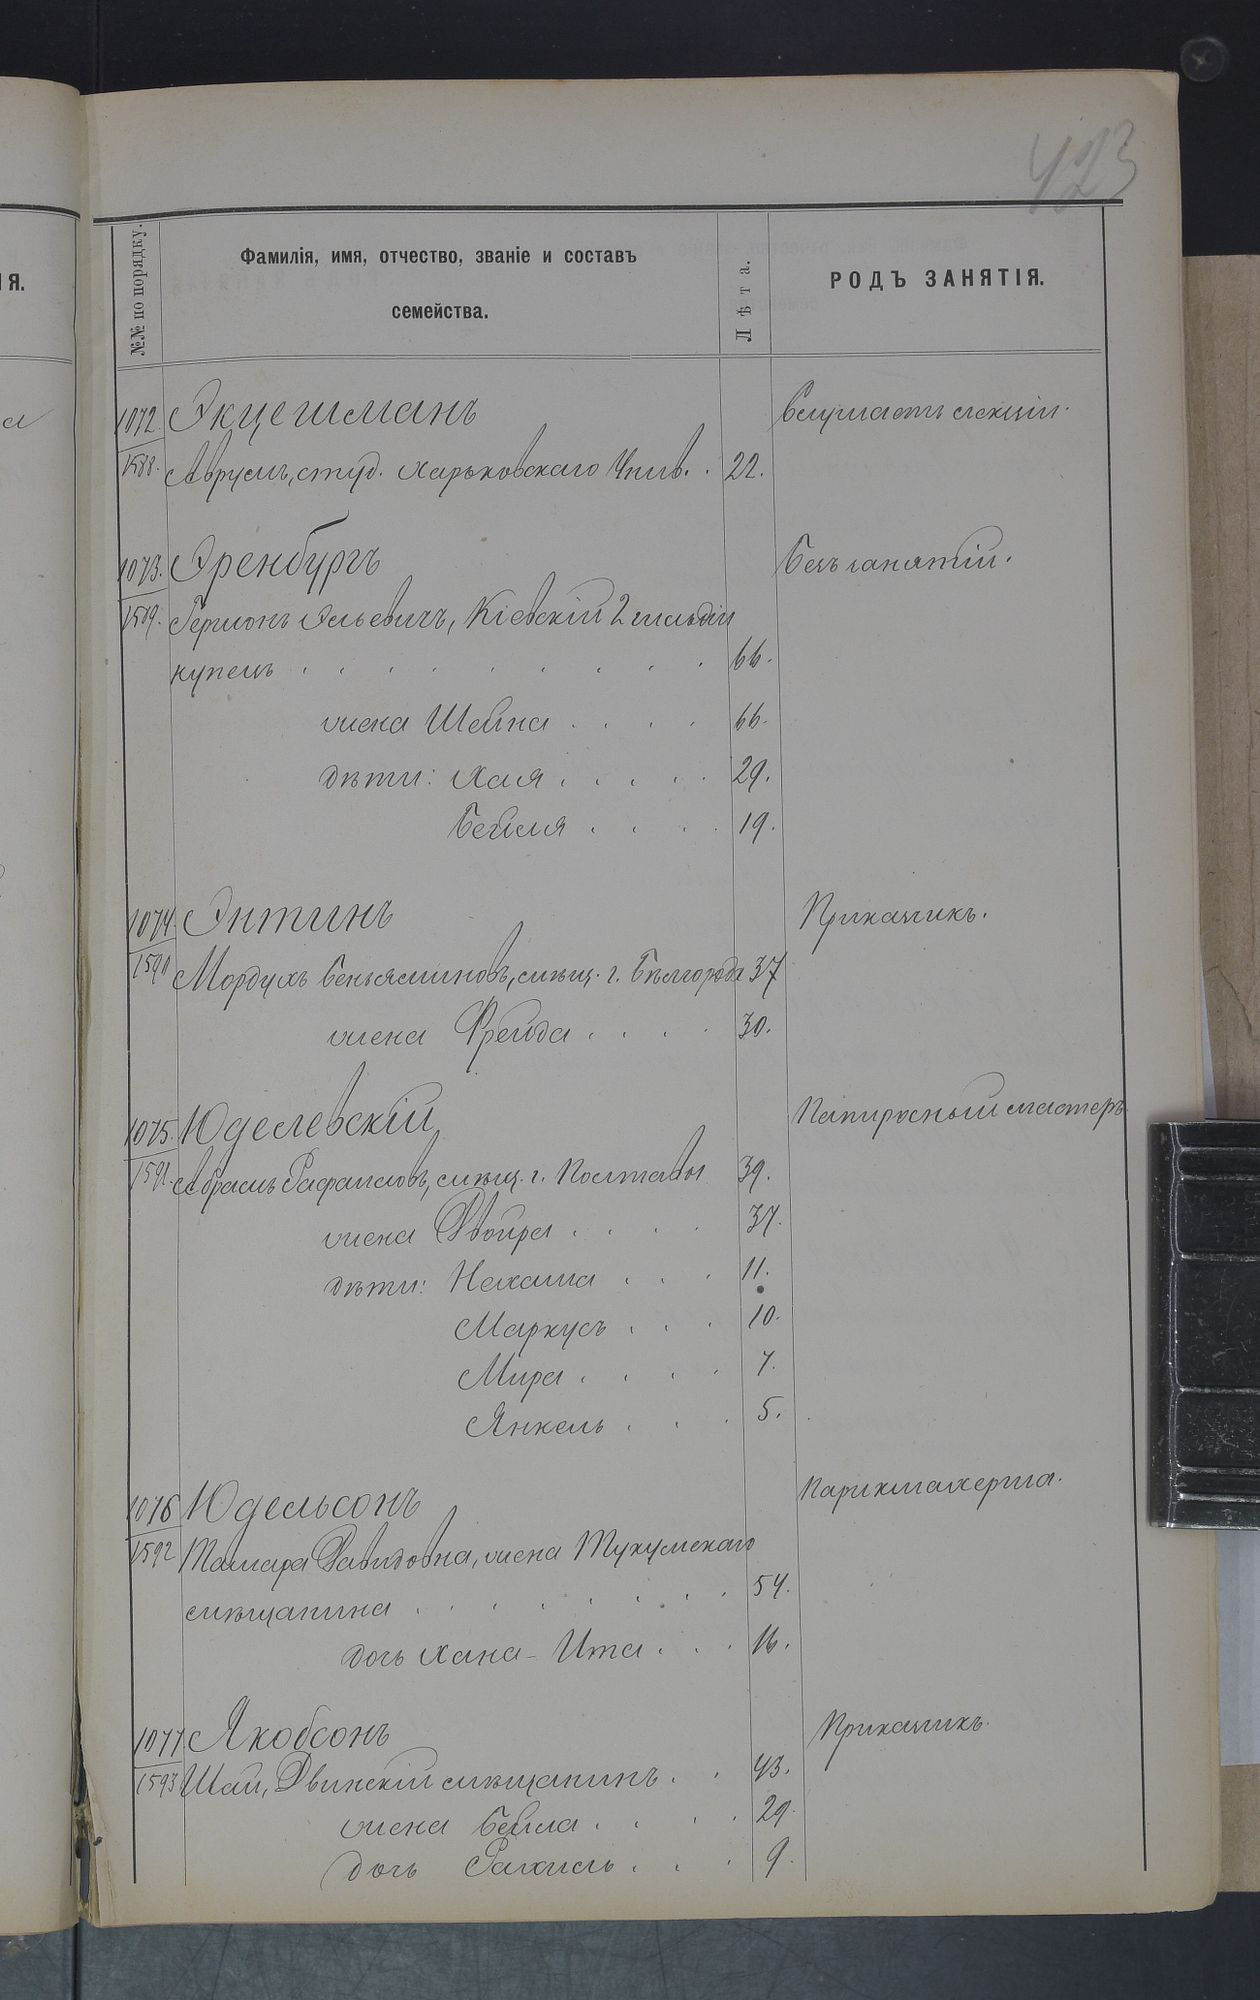 423
№№ по порядку.
Фамилія, имя, отчество, званіе и составъ
семейства.
Лѣта.
РОДЪ ЗАНЯТІЯ.
ІЯ.
1072. Экцешманъ Слушаетъ лекціи.
1588. Аврумъ, студ. Харьковскаго Унив. . 22.
1073. Эренбургъ Безъ занятій.
1589. Гершонъ Ильевичъ, Кіевскій 2 гильдіи
купецъ . . . . . . . . . 66.
жена Шейна . . . . 66.
дѣти: Хая . . . . . 29.
Бейля . . . . 19.
1074. Энтинъ Приказчикъ.
1590 Мордухъ Беньяминовъ, мѣщ. г. Бѣлгорода 37
жена Фрейда . . . . 30.
1075. Юделевскій Папиросный мастеръ
1591. Абрамъ Рафаиловъ, мѣщ. г. Полтавы 39.
жена Двойра . . . . 37.
дѣти: Нехама . . . 11.
Маркусъ . . . 10.
Мира . . . . 7.
Янкель . . . 5.
1076 Юдельсонъ Парикмахерша.
1592 Тамара Давидовна, жена Тукумскаго
мѣщанина . . . . . . . 54.
дочь Хана-Ита . . . 16.
1077 Якобсонъ Приказчикъ.
1593 Шая, Двинскій мѣщанинъ . . 43.
жена Бейла . . . . 29.
дочь Рахиль . . . 9.